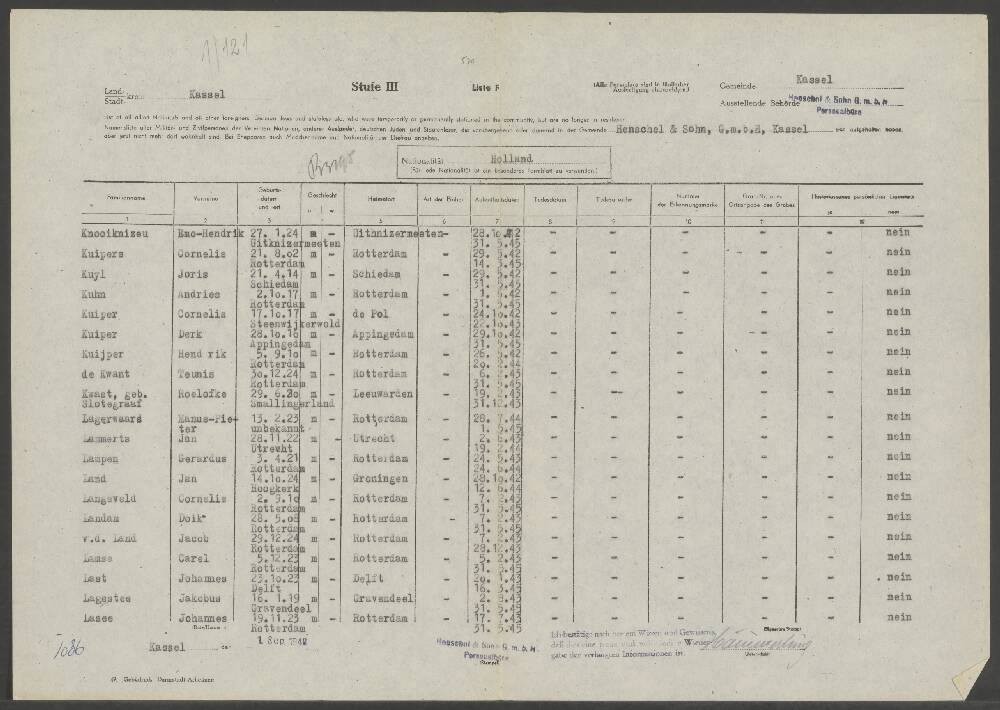 1/121
Stufe III
Liste F
Land-
Stadt- kreis Kassel
Gemeinde Kassel
Ausstellende Behörde Henschel & Sohn G.m.b.H
Personalbüro
Henschel & Sohn, G.m.b.H, Kassel
Nationalität Holland
(Für jede Nationalität ist ein besonderes Formblatt zu verwenden)
Familienname Vorname Geburts- daten und -ort Geschlecht m w Heimatort Art der Papiere Aufenthaltsdaten Todesdatum Todesursache Nummer der Erkennungsmarke ja nein
1 2 3 4 5 6 7 8 9 10 11 12
Knooiknizeu Emo-Hendrik 27. 1.24 m - Uithnizermeeten- 28.10.42 - - - - nein
Uitknizermeeten 31. 5.45
Kuipers Cornelis 21. 8.02 m - Rotterdam - 29. 5.42 - - - - - nein
Rotterdam 14. 3.45
Kuyl Joris 21. 4.14 m - Schiedam - 29. 5.42 - - - - - nein
Schiedam 31. 5.45
Kuhm Andries 2.10.17 m - Rotterdam - 1. 6.42 - - - - - nein
Rotterdam 31. 5.45
Kuiper Cornelis 17.10.17 m - de Pol - 24.10.42 - - - - - nein
Steenwijkerwold 22.10.43
Kuiper Derk 28.10.18 m - Appingedam - 29.10.42 - - - - - nein
Appingedam 31. 5.45
Kuijper Hend rik 5. 9.10 m - Rotterdam - 26. 5.42 - - - - - nein
Rotterdam 20. 2.44
de Kwant Teunis 30.12.24 m - Rotterdam - 6. 2.43 - - - - - nein
Rotterdam 31. 5.45
Kwast, geb. Roelofke 29. 6.20 m - Leeuwarden - 19. 2.43 - - - - - nein
Slotegraaf Smallingerland 31.12.43
Lagerwaard Manus-Pie- 13. 2.23 m - Rotterdam - 26. 7.44 - - - - - nein
ter unbekannt 1. 5.45
Lammerts Jan 28.11.22 m - Utrecht - 2. 6.43 - - - - - nein
Utrecht 19. 2.44
Lampen Gerardus 3. 4.21 m - Rotterdam - 24. 5.43 - - - - - nein
Rotterdam 24. 6.44
Land Jan 14.10.24 m - Groningen - 28.10.42 - - - - - nein
Hoogkerk 12. 6.44
Langeveld Cornelis 2. 9.10 m - Rotterdam - 7. 2.43 - - - - - nein
Rotterdam 31. 5.45
Landam Doik 28. 5.08 m - Rotterdam - 7. 2.43 - - - - - nein
Rotterdam 31. 5.45
v.d. Land Jacob 29.12.24 m - Rotterdam - 7. 2.43 - - - - - nein
Rotterdam 28.12.43
Lamse Carel 5.12.23 m - Rotterdam - 5. 2.43 - - - - - nein
Rotterdam 31. 5.45
Last Johannes 23.10.23 m - Delft - 20. 1.43 - - - - - nein
Delft 16. 3.45
Lagestee Jakobus 16. 1.19 m - Gravendeel - 2. 8.43 - - - - - nein
Gravendeel 31. 5.45
Lasee Johannes 19.11.23 m - Rotterdam - 17. 7.43 - - - - - nein
Rotterdam 31. 5.45
7086
Kassel, den 1. Sep. 1948
Henschel & Sohn G.m.b.H
Personalbüro
Ich bestätige nach bestem Wissen und Gewissen,